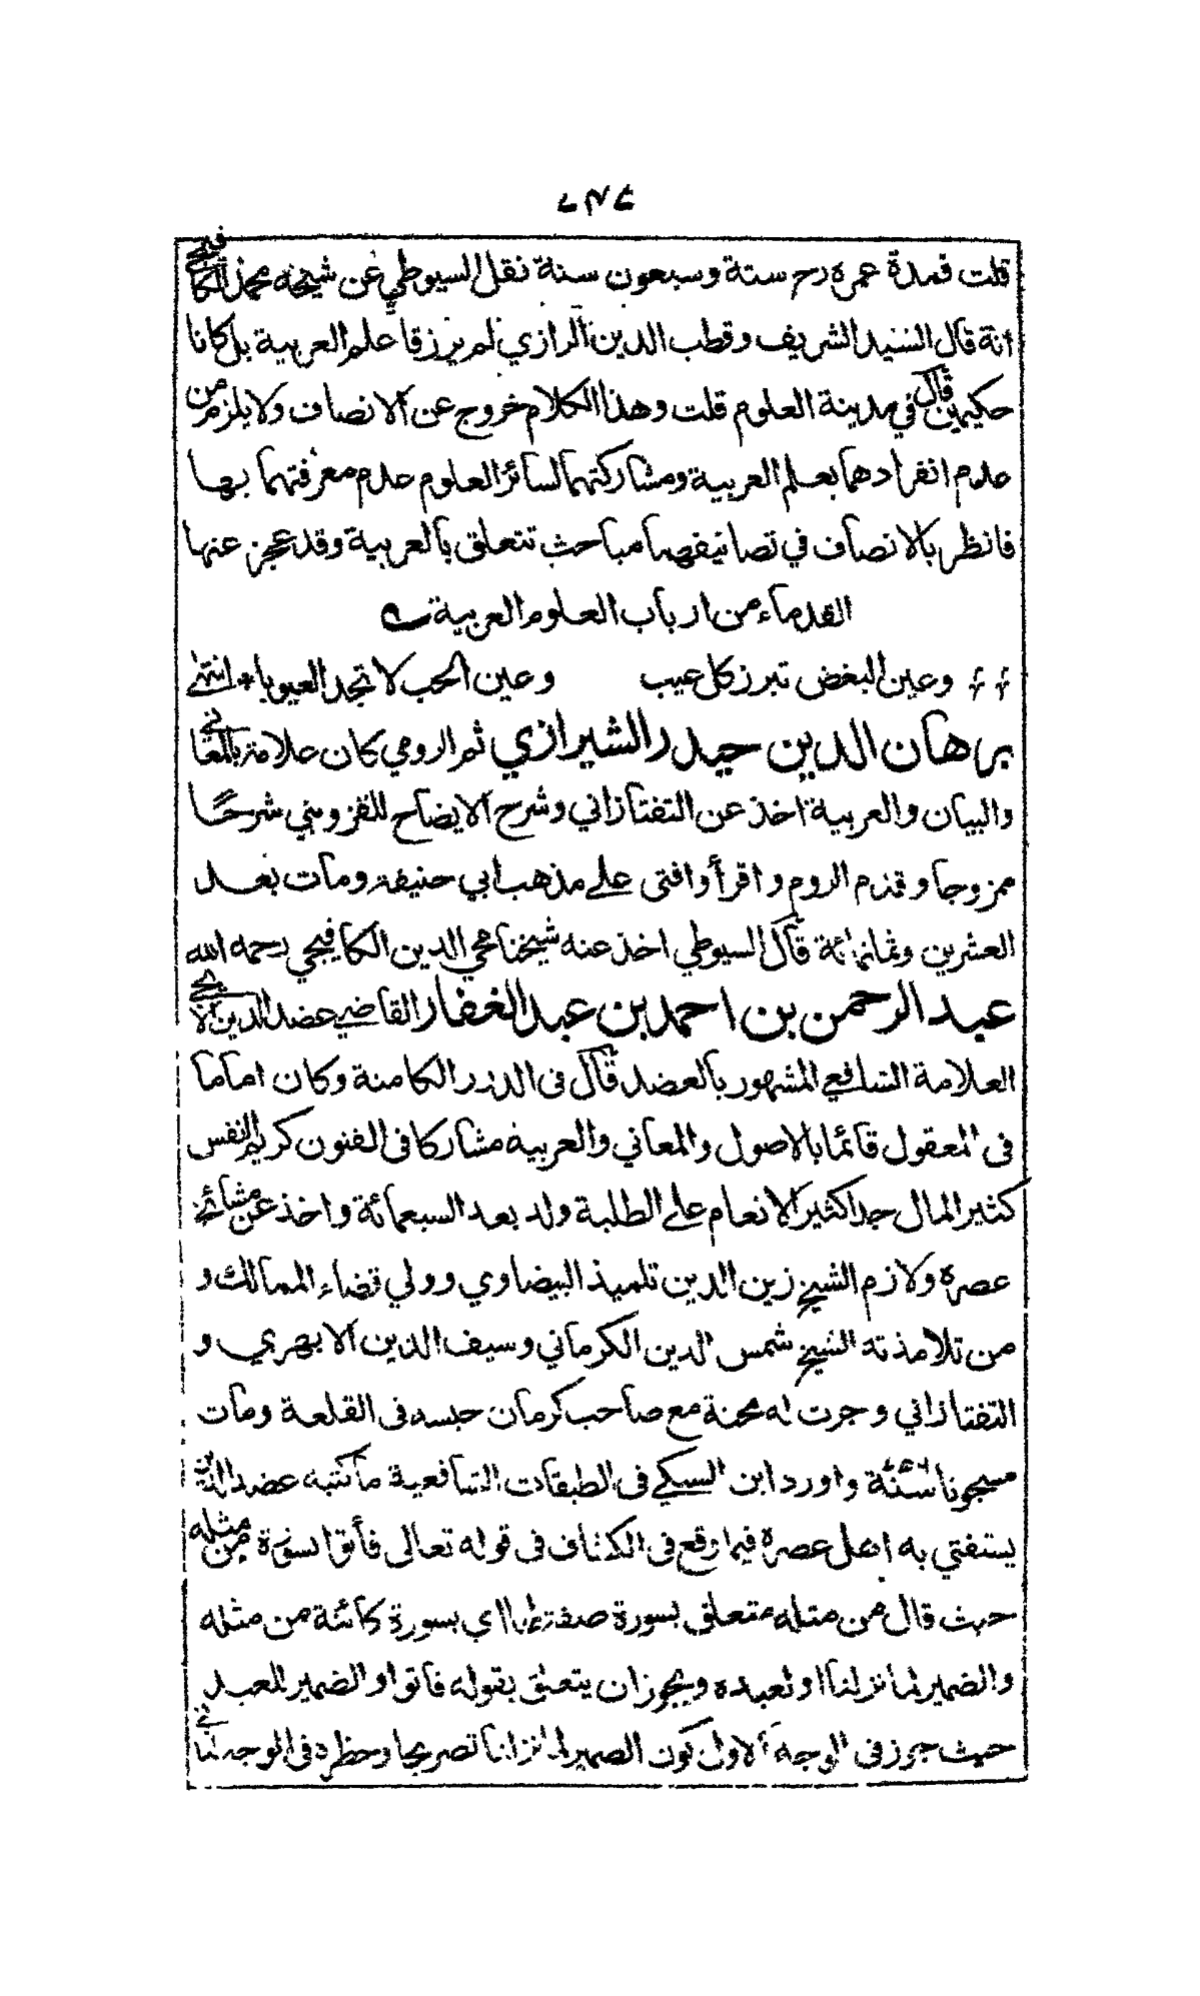 قلت فمدة عمره رح ستة وسبعون سنة نقل السيوطي عن شيخه محمد الكافيجي
انه قال السيد الشريف وقطب الدين الرازي لم يرزقا علم العربية بل كانا
حكيمين قال في مدينة العلوم قلت وهذا الكلام خروج عن الانصاف ولا يلزم من
عدم انفرادهما بعلم العربية ومشاركتهما لسائر العلوم عدم معرفتهما بها
فانظر بالانصاف في تصانيفهما مباحث تتعلق بالعربية وقد عجز عنها
القدماء من ارباب العلوم العربية
وعين البغض تبرز كل عيب وعين الحب لا تجد العيوبا * انتهى
برهان الدين حيدر الشيرازي ثم الرومي كان علامة بالمعاني
والبيان والعربية اخذ عن التفتازاني وشرح الايضاح للقزويني شرحًا
ممزوجا وقدم الروم واقرأ وافتى على مذهب ابي حنيفة ومات بعد
العشرين وثمانمائة قال السيوطي اخذ عنه شيخنا محي الدين الكافيجي رحمه الله
عبد الرحمن بن احمد بن عبد الغفار القاضي عضد الدين الايجي
العلامة الشافعي المشهور بالعضد قال فى الدرر الكامنة وكان اماما
فى المعقول قائما بالاصول والمعاني والعربية مشاركا فى الفنون كريم النفس
كثير المال جدا كثير الانعام على الطلبة ولد بعد السبعمائة واخذ عن مشائخ
عصره ولازم الشيخ زين الدين تلميذ البيضاوي وولي قضاء الممالك و
من تلامذته الشيخ شمس الدين الكرماني وسيف الدين الابهري و
التفتازاني وجرت له محنة مع صاحب كرمان حبسه فى القلعة ومات
مسجونا واورد ابن السبكي فى الطبقات الشافعية ما كتبه عضد الدين
يستفتي به اهل عصره فيما وقع فى الكشاف فى قوله تعالى فأتوا بسورة من مثله
حيث قال من مثله متعلق بسورة صفة لها اي بسورة كائنة من مثله
والضمير لما نزلنا او لعبده ويجوز ان يتعلق بقوله فاتوا والضمير للعبد
حيث جوز فى الوجه الاول كون الضمير لما نزلنا تصريحا وحظره فى الوجه الثاني